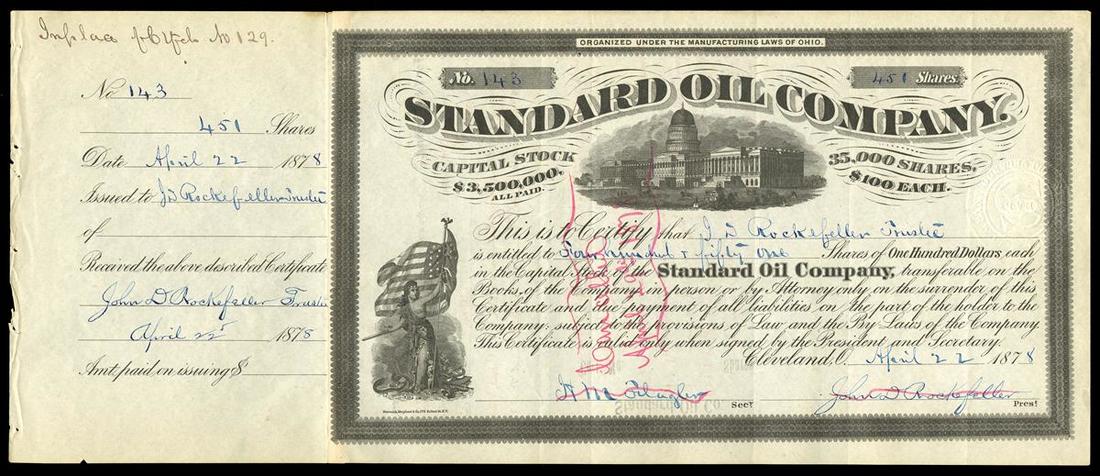 No 129.
No 143
451 Shares
Date April 22 1878
Issued to J D Rockefeller Trustee
of
Received the above described Certificate
John D Rockefeller Trustee
April 22 1878
Amt. paid on issuing $
ORGANIZED UNDER THE MANUFACTURING LAWS OF OHIO.
No. 143
451 Shares.
STANDARD OIL COMPANY.
CAPITAL STOCK
$3,500,000.
ALL PAID.
35,000 SHARES,
$100 EACH.
This is to Certify that J D Rockefeller Trustee
is entitled to Four hundred & fifty one Shares of One Hundred Dollars, each
in the Capital Stock of the Standard Oil Company, transferable on the
Books, of the Company in person or by Attorney only on the surrender of this
Certificate and the payment of all liabilities on the part of the holder to the
Company: subject to the provisions of Law and the By-Laws of the Company
This Certificate is valid only when signed by the President and Secretary.
Cleveland, O. April 22 1878
H M Flagler Secy
John D Rockefeller Prest
Cancelled